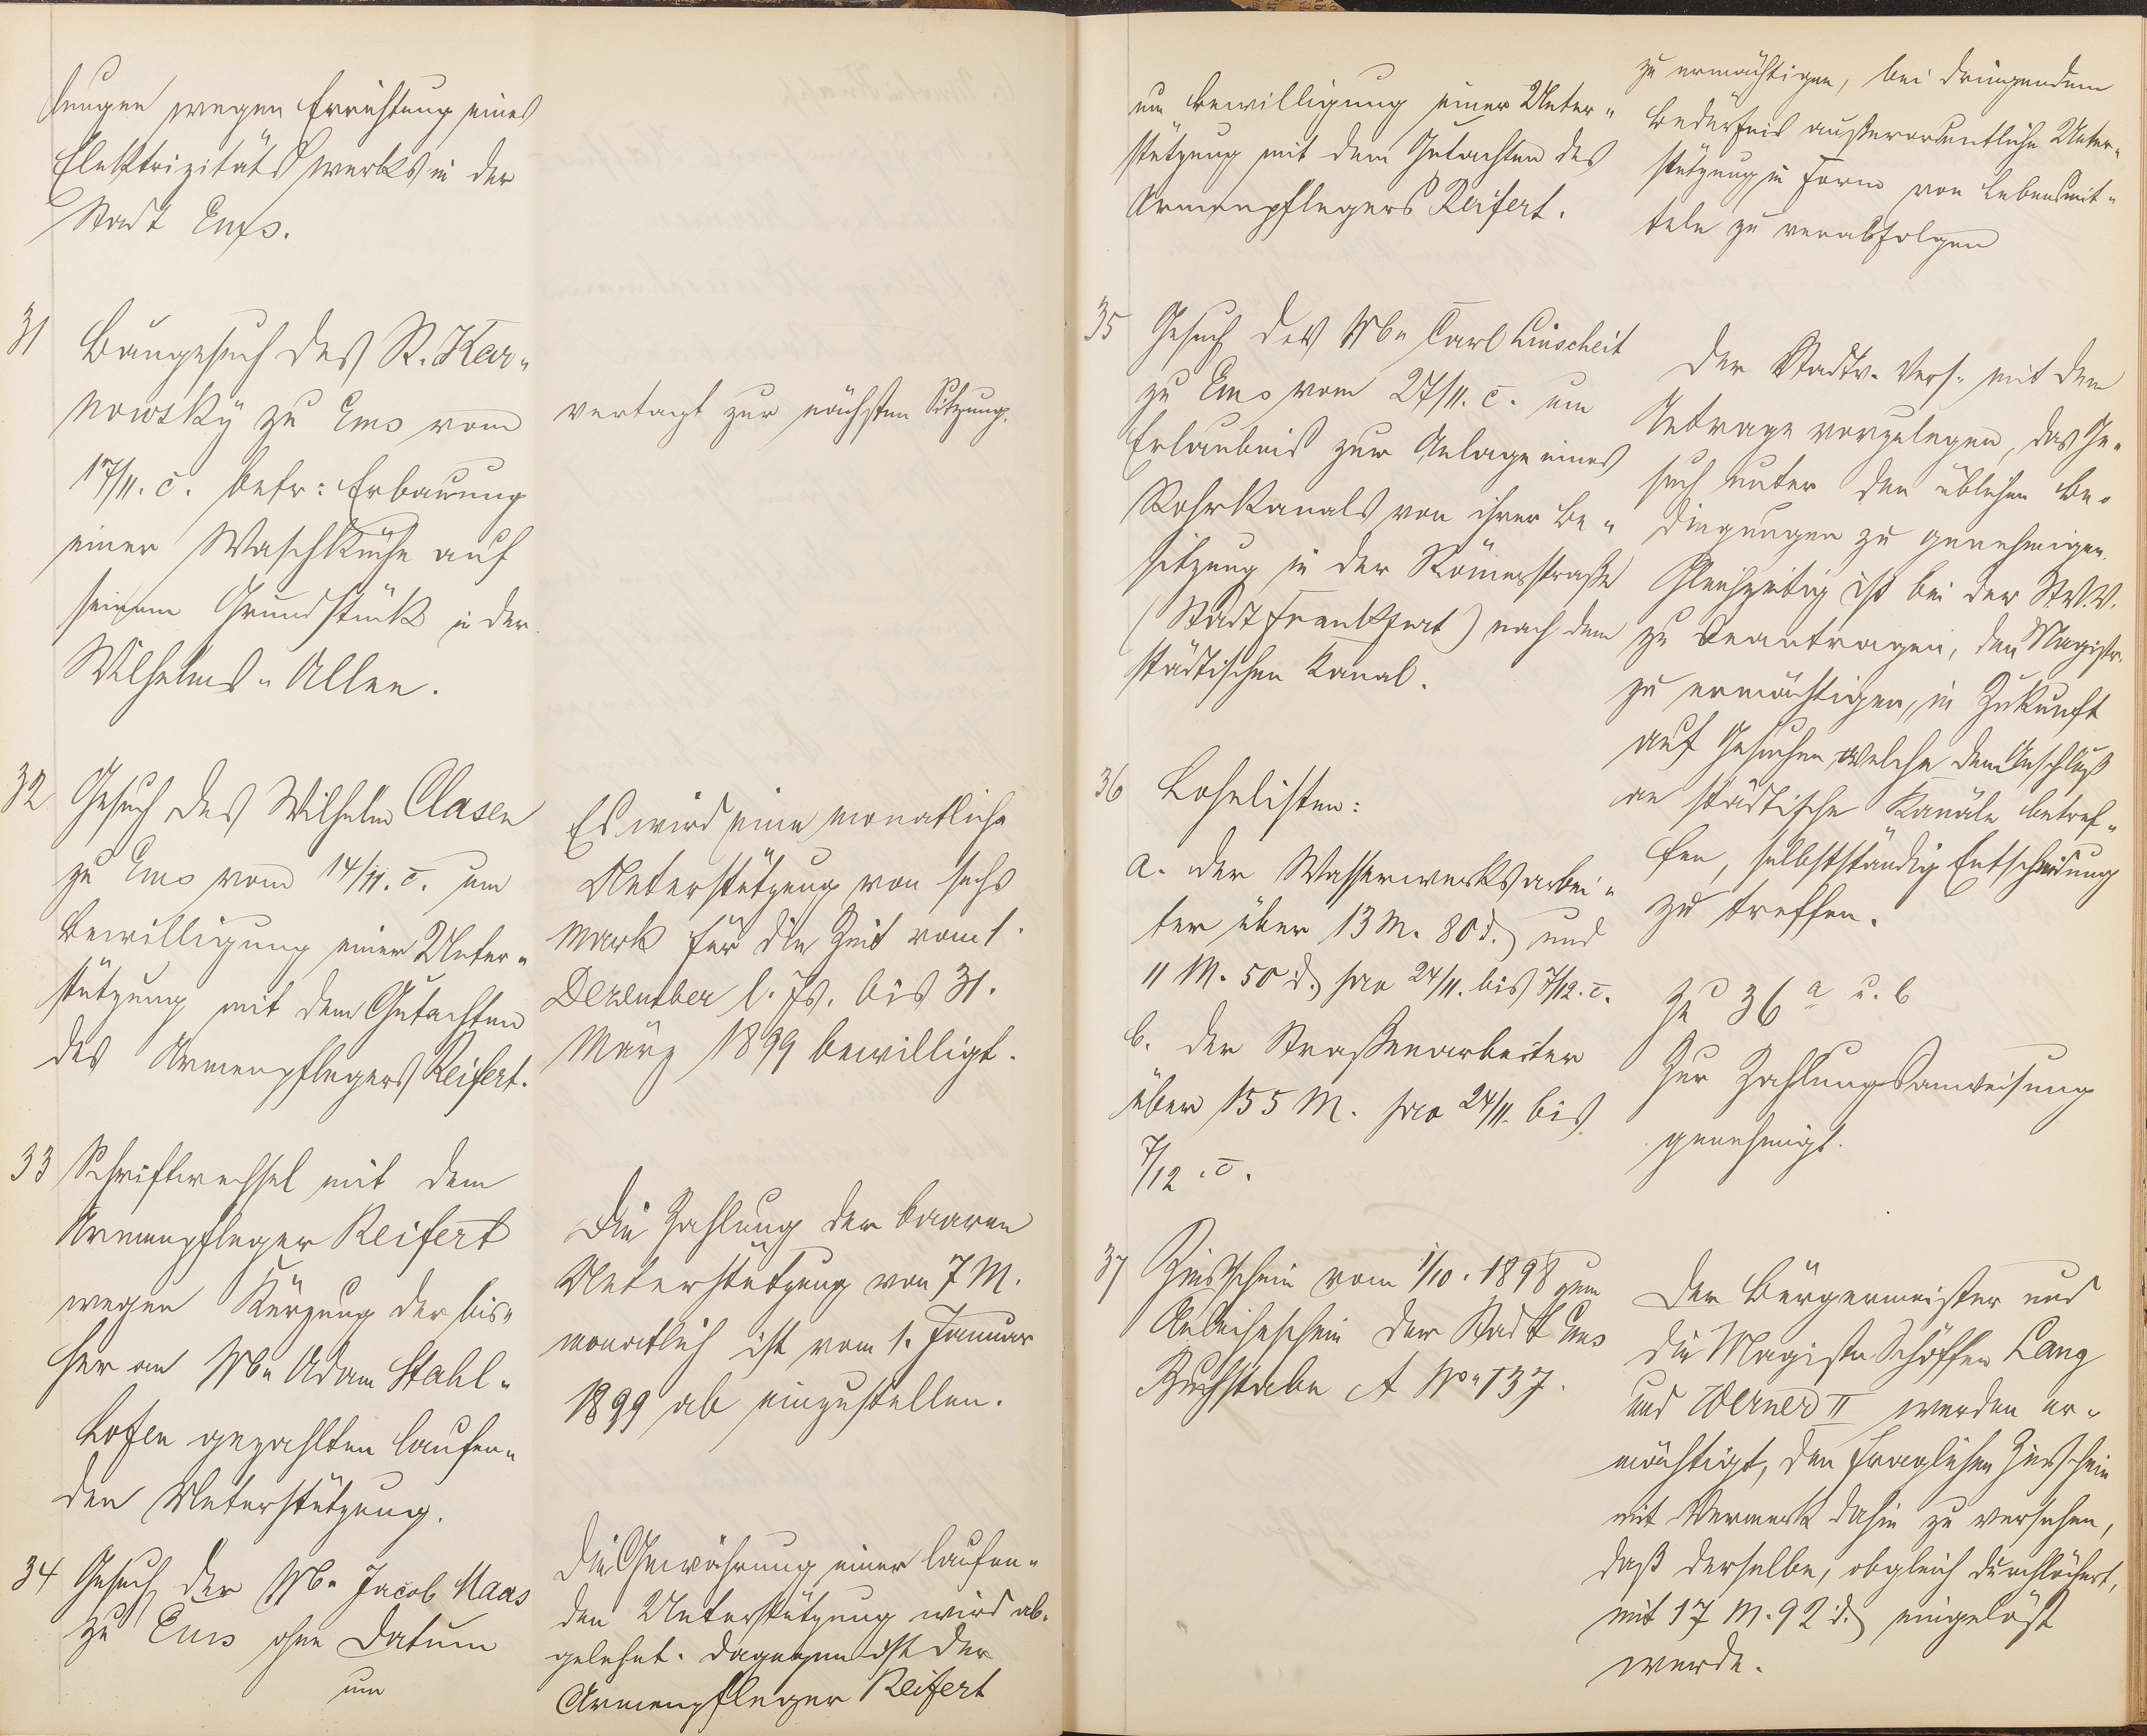 lungen wegen Errichtung eines
Elektrizitätswerks in der
Stadt Ems.
31 Baugesuch des R. Kar-
nowsky zu Ems vom
17/11. c. betr: Erbauung
einer Waschküche auf
seinem Grundstück in der
Wilhelms-Allee.
vertagt zur nächsten Sitzung.
32 Gesuch des Wilhelm Clasen
zu Ems vom 14/11. c. um
Bewilligung einer Unter-
stützung mit dem Gutachten
des Armenpflegers Reifert.
Es wird eine monatliche
Unterstützung von sechs
Mark für die Zeit vom 1.
Dezember l. Js. bis 31.
März 1899 bewilligt.
33 Schriftwechsel mit dem
Armenpfleger Reifert
wegen Kürzung der bis-
her an Ww. Adam Stahl-
hofen gezahlten laufen-
den Unterstützung.
Die Zahlung der baaren
Unterstützung von 7 M.
monatlich ist vom 1. Januar
1899 ab einzustellen.
34 Gesuch der Ww. Jacob Maas
zu Ems ohne Datum
um
Die Gewährung einer laufen-
den Unterstützung wird ab-
gelehnt. Dagegen ist der
Armenpfleger Reifert
um Bewilligung einer Unter-
stützung mit dem Gutachten des
Armenpflegers Reifert.
zu ermächtigen, bei dringendem
Bedürfnis außerordentliche Unter-
stützung in Form von Lebensmit-
teln zu verabfolgen
35 Gesuch der Ww. Carl Linscheit
zu Ems vom 27/11. c. um
Erlaubnis zur Anlage eines
Rohrkanals von ihrer Be-
sitzung in der Römerstraße
(Stadt Frankfurt) nach dem
städtischen Kanal.
Der Stadtv. Vers. mit dem
Antrage vorzulegen, das Ge-
such unter den üblichen Be-
dingungen zu genehmigen.
Gleichzeitig ist bei der St.V.V.
zu beantragen, den Magistr.
zu ermächtigen, in Zukunft
auf Gesuchen, welche den Anschluß
an städtische Kanäle betref-
fen, selbstständig Entscheidung
zu treffen.
36 Lohnlisten:
a. der Wasserwerksarbei-
ter über 13 M. 80 d. und
11 M. 50 d. pro 24/11. bis 7/12. c.
b. der Straßenarbeiter
über 155 M. pro 24/11. bis
7/12. c.
Zu 36 a u. b
Zur Zahlungsanweisung
genehmigt.
37 Zinsschein vom 1/10. 1898 zum
Anleiheschein der Stadt Ems
Buchstabe A No. 137.
Der Bürgermeister und
die Magistr. Schöffen Lang
und Werner II werden er-
mächtigt, den fraglichen Zinsschein
mit Vermerk dahin zu versehen,
daß derselbe, obgleich durchlöchert,
mit 17 M. 92 d. eingelöst
werde.